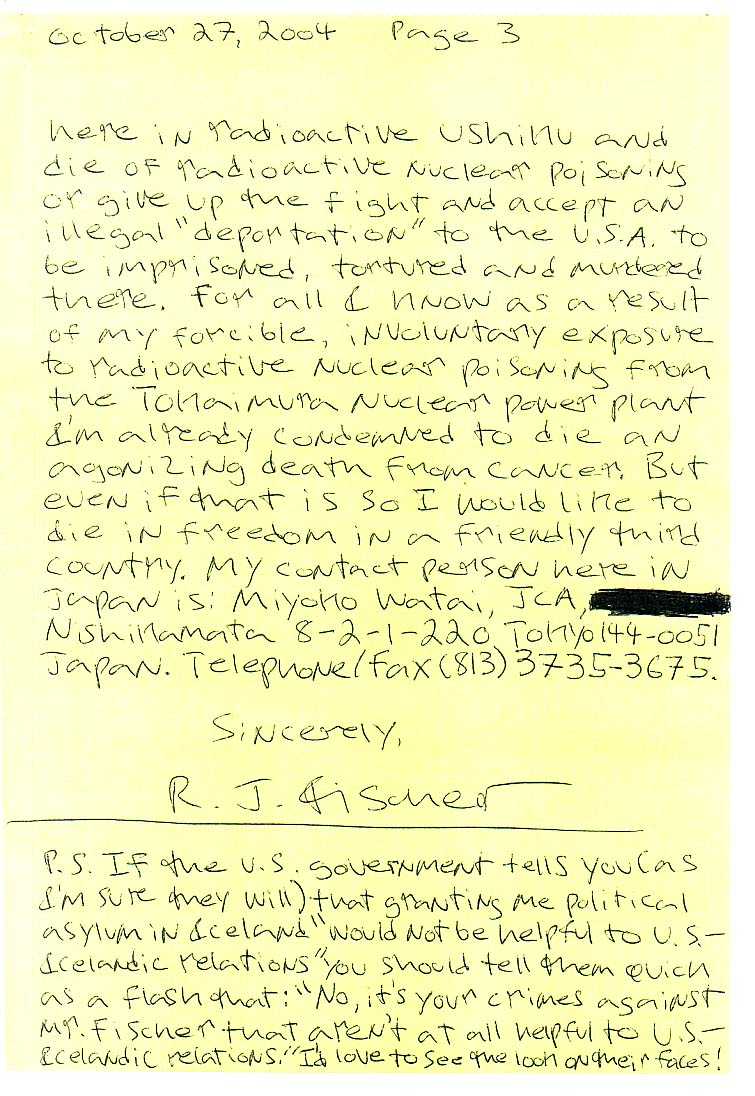 October 27, 2004 Page 3
here in radioactive Ushiku and
die of radioactive nuclear poisoning
or give up the fight and accept an
illegal "deportation" to the U.S.A. to
be imprisoned, tortured and murdered
there. For all I know as a result
of my forcible, involuntary exposure
to radioactive nuclear poisoning from
the Tokaimura nuclear power plant
I'm already condemned to die an
agonizing death from cancer. But
even if that is so I would like to
die in freedom in a friendly third
country. My contact person here in
Japan is: Miyoko Watai, JCA,
Nishikamata 8-2-1-220 Tokyo 144-0051
Japan. Telephone/fax (813) 3735-3675.
Sincerely,
R. J. Fischer
P.S. If the U.S. government tells you (as
I'm sure they will) that granting me political
asylum in Iceland "would not be helpful to U.S.-
Icelandic relations" you should tell them quick
as a flash that: "No, it's your crimes against
Mr. Fischer that aren't at all helpful to U.S.-
Icelandic relations." I'd love to see the look on their faces!